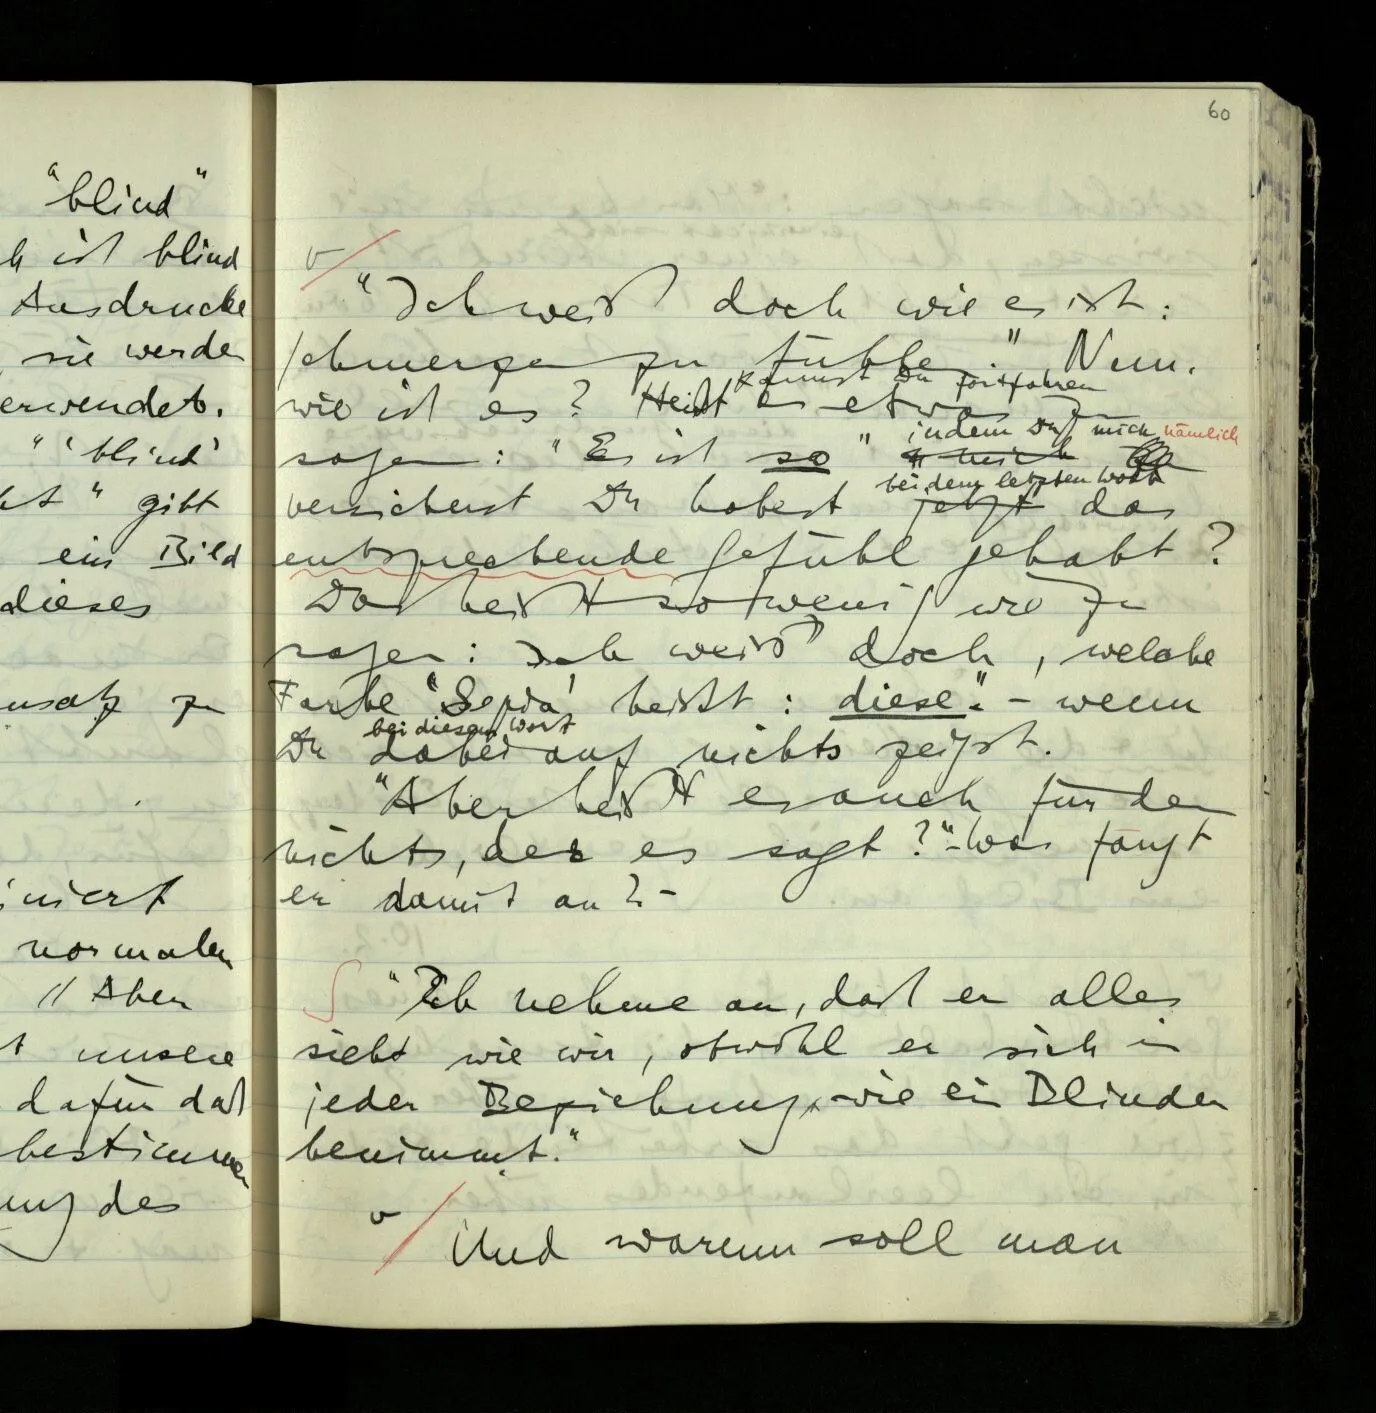 "blind"
ist blind
Ausdrucke
sie werden
erwendet.
" 'blind'
" gibt
ein Bild
dieses
zu
normalen
// Aber
unsere
dafür daß
bestimmen
des
60
"Ich weiß doch wie es ist:
Schmerzen zu fühlen." Nun.
kannst Du fortfahren
wie ist es? Heißt es etwas zu
indem Du mich nämlich
sagen: "Es ist so" mich
bei dem letzten Wort
versicherst Du habest jetzt das
entsprechende Gefühl gehabt?
Das heißt so wenig wie zu
sagen: Ich weiß doch, welche
Farbe 'Sepia' heißt: diese." – wenn
bei diesem Wort
Du dabei auf nichts zeigst.
"Aber heißt es auch für den
nichts, der es sagt?" – Was fängt
er damit an? –
∫ "Ich nehme an, daß er alles
sieht wie wir, obwohl er sich in
jeder Beziehung wie ein Blinder
benimmt."
Und warum soll man